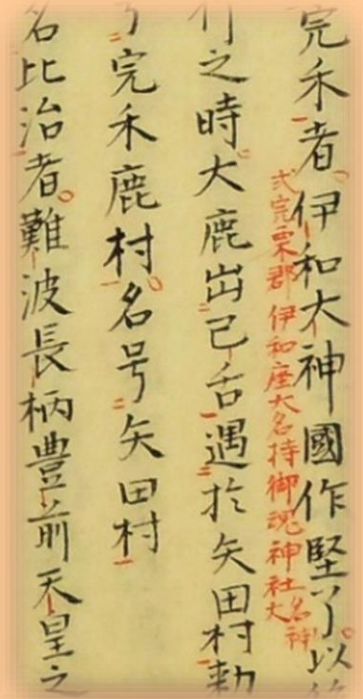 完禾者伊和大神國作堅了以
式完栗郡 伊和座大名持御魂神社 名神大
之時大鹿出己舌遇於矢田村勅
完禾鹿村名号矢田村
名比治者難波長柄豊前天皇之